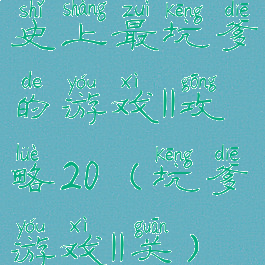 shǐ shàng zuì kēng diē
史上最坑爹
de yóu xì gōng
的游戏||攻
lüè kēng diē
略20（坑爹
yóu xì guān
游戏||关）